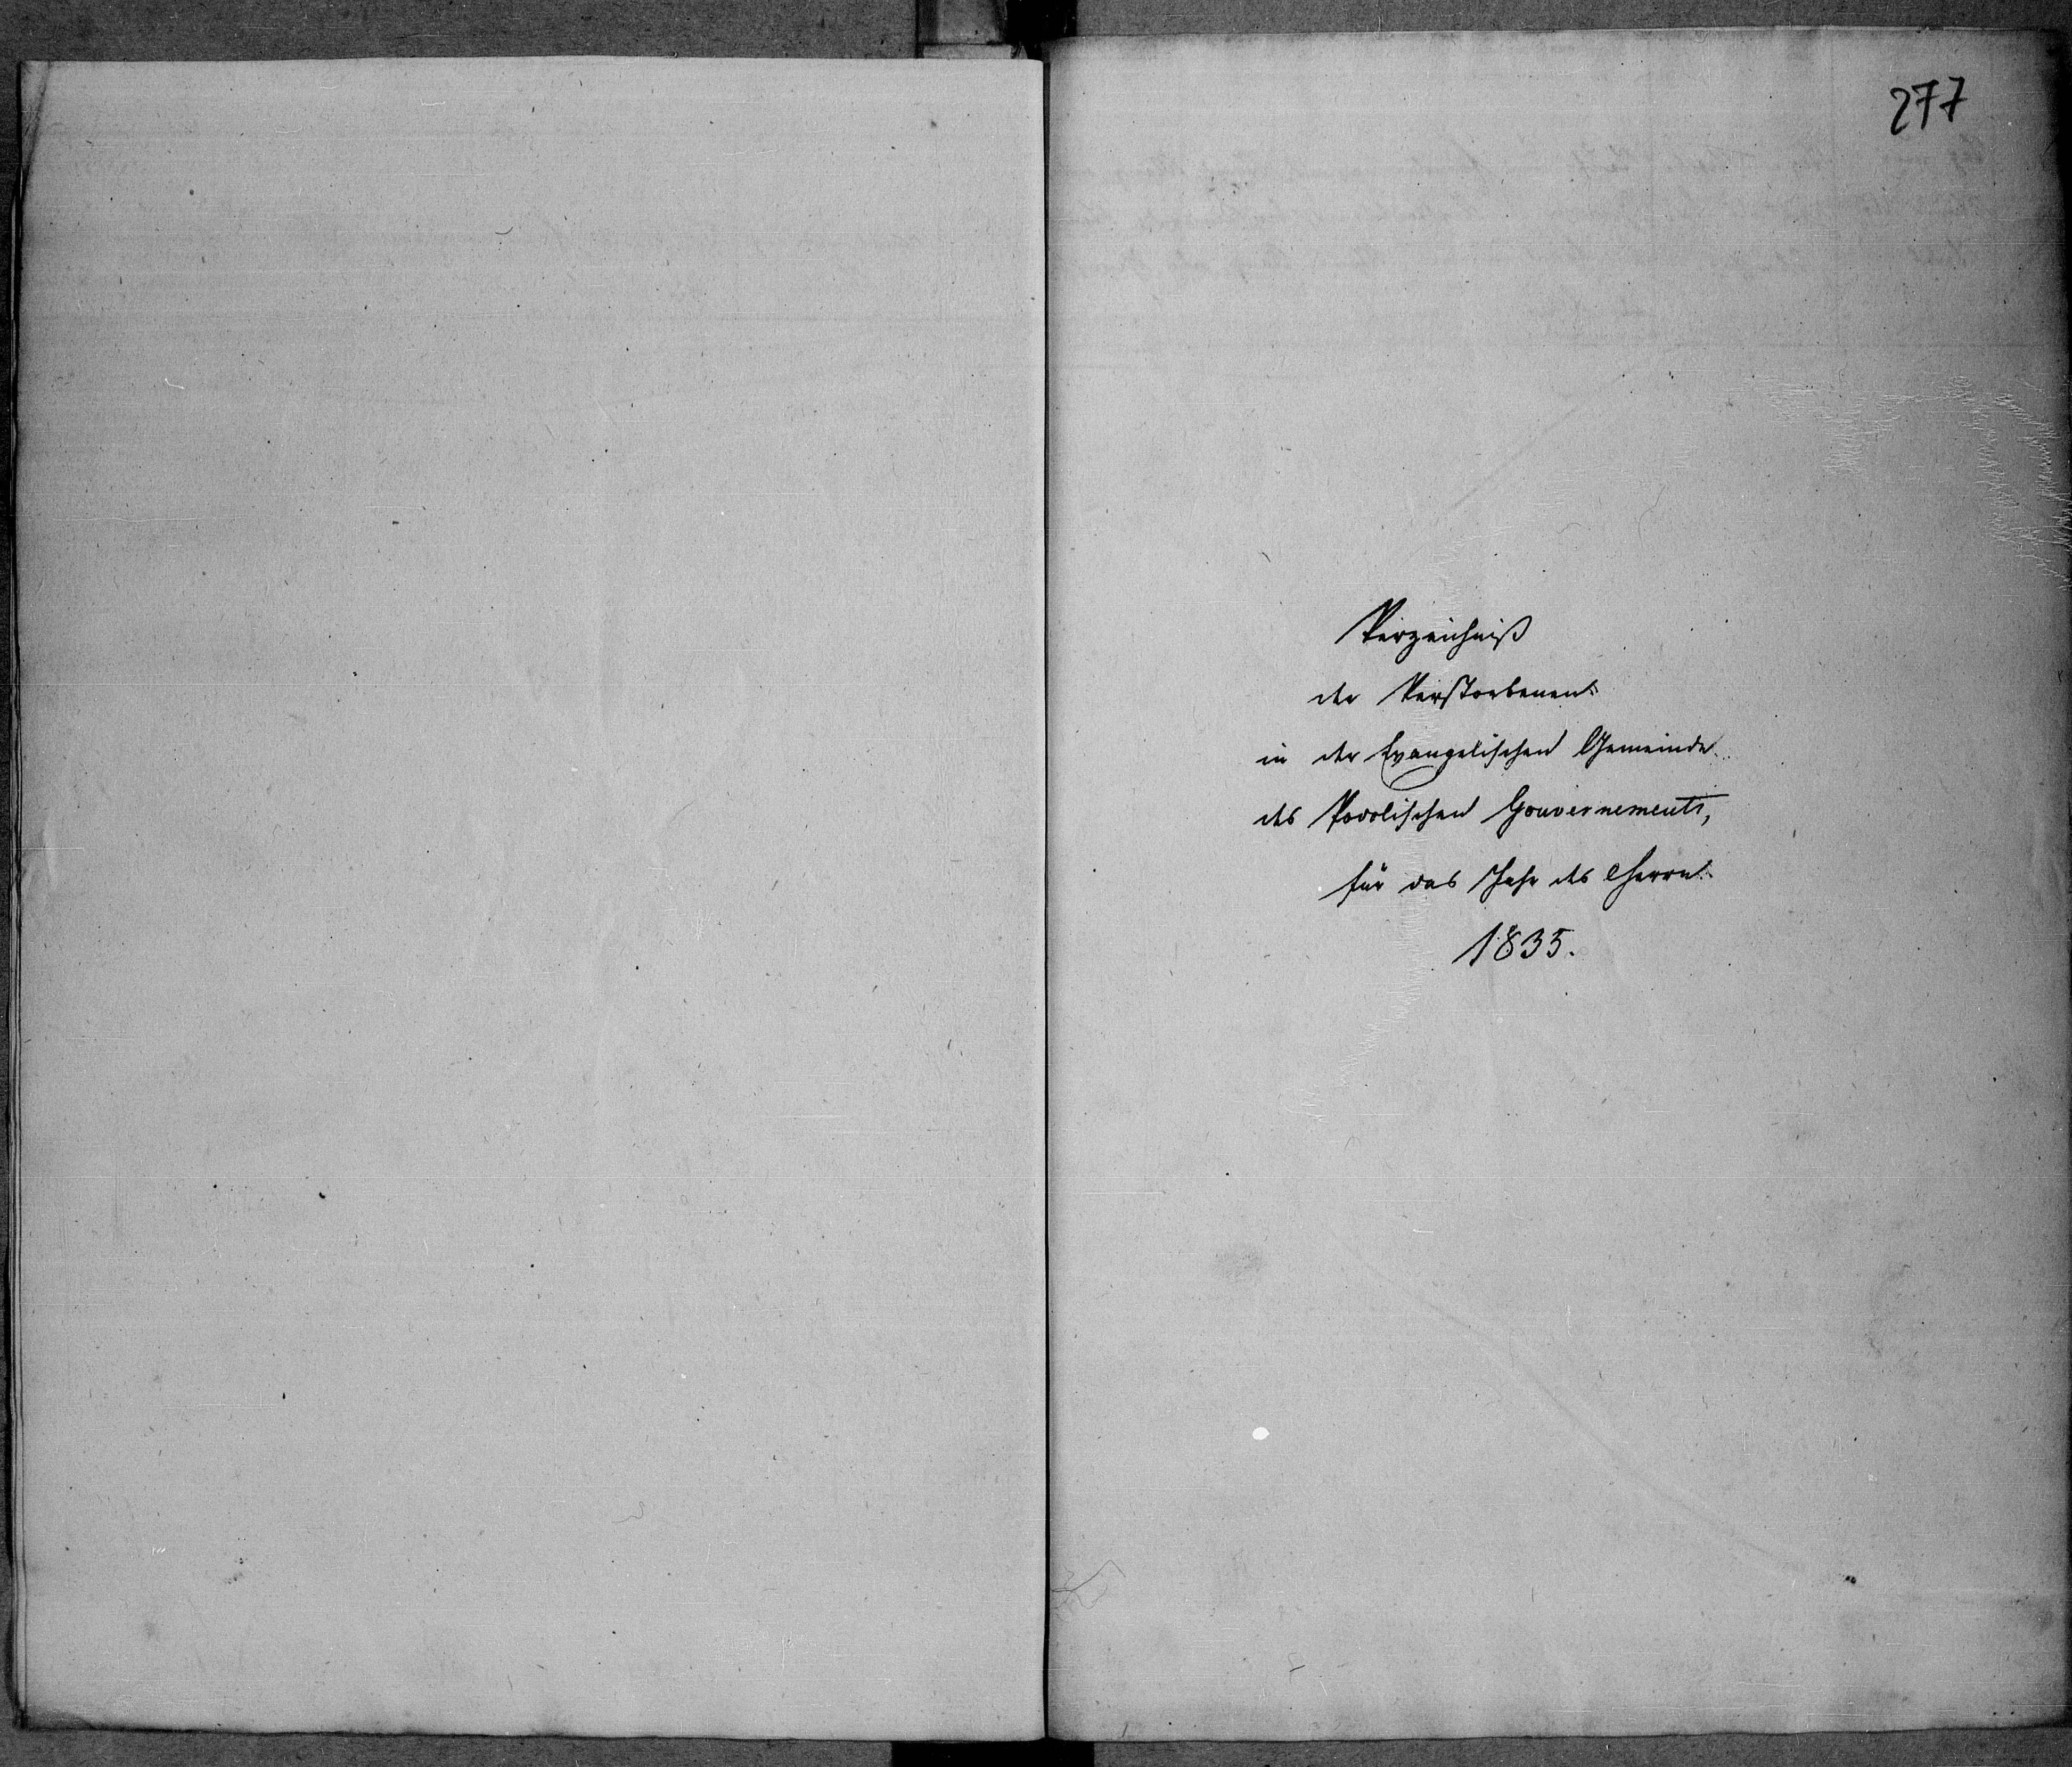 277
Verzeichniß
der Verstorbenen
in der Evangelischen Gemeinde
des Podolischen Gouvernements,
für das Jahr des Herrn
1835.